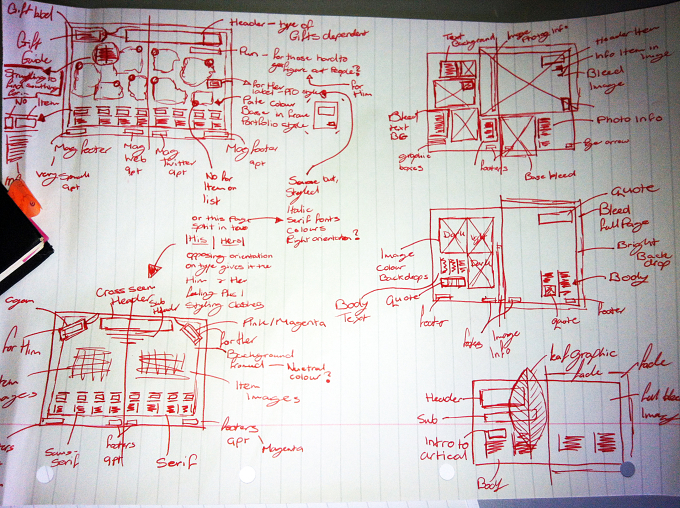 Gift label
Gift
Guide
Struggling to
find anything
No Item
Header - type of
Gifts dependent
Run - for those hard to
figure out People?
For Her
label - PTO style
for
Him
Pale Colour
Base in frame
Portfolio style
Mag footer
very small
9pt
Mag
Web
9pt
Mag
Twitter
9pt
Mag footer
9pt
No for
Item on
list
or this Page
Split in two
His | Hers
opposing orientation
on type gives it the
Him & Her
feeling Plus
Styling Clothes
Square but,
Styled
Italic
Serif fonts
Colours
Right orientation?
Cross seem
Header
Sub
Header
for Him
for Her
Pink/Magenta
Background
Neutral
colour?
Item
Images
Item
Images
footers
9pt
Magenta
Sans-
Serif
footers
9pt
Serif
Text
Background
Image
Photo Info
Header Item
Info Item in Image
Bleed
Image
Photo Info
Page arrow
Bleed
text
BG
graphic
boxes
footers
Base bleed
Quote
Bleed
full Page
Bright
Back
drop
Body
footer
quote
Dark
light
Dark
Image
Colour
Backdrops
Quote
Body
Text
footer
Image
Info
leaf graphic
fade
fade
Header
Sub
Intro to
artical
Body
full bleed
Image